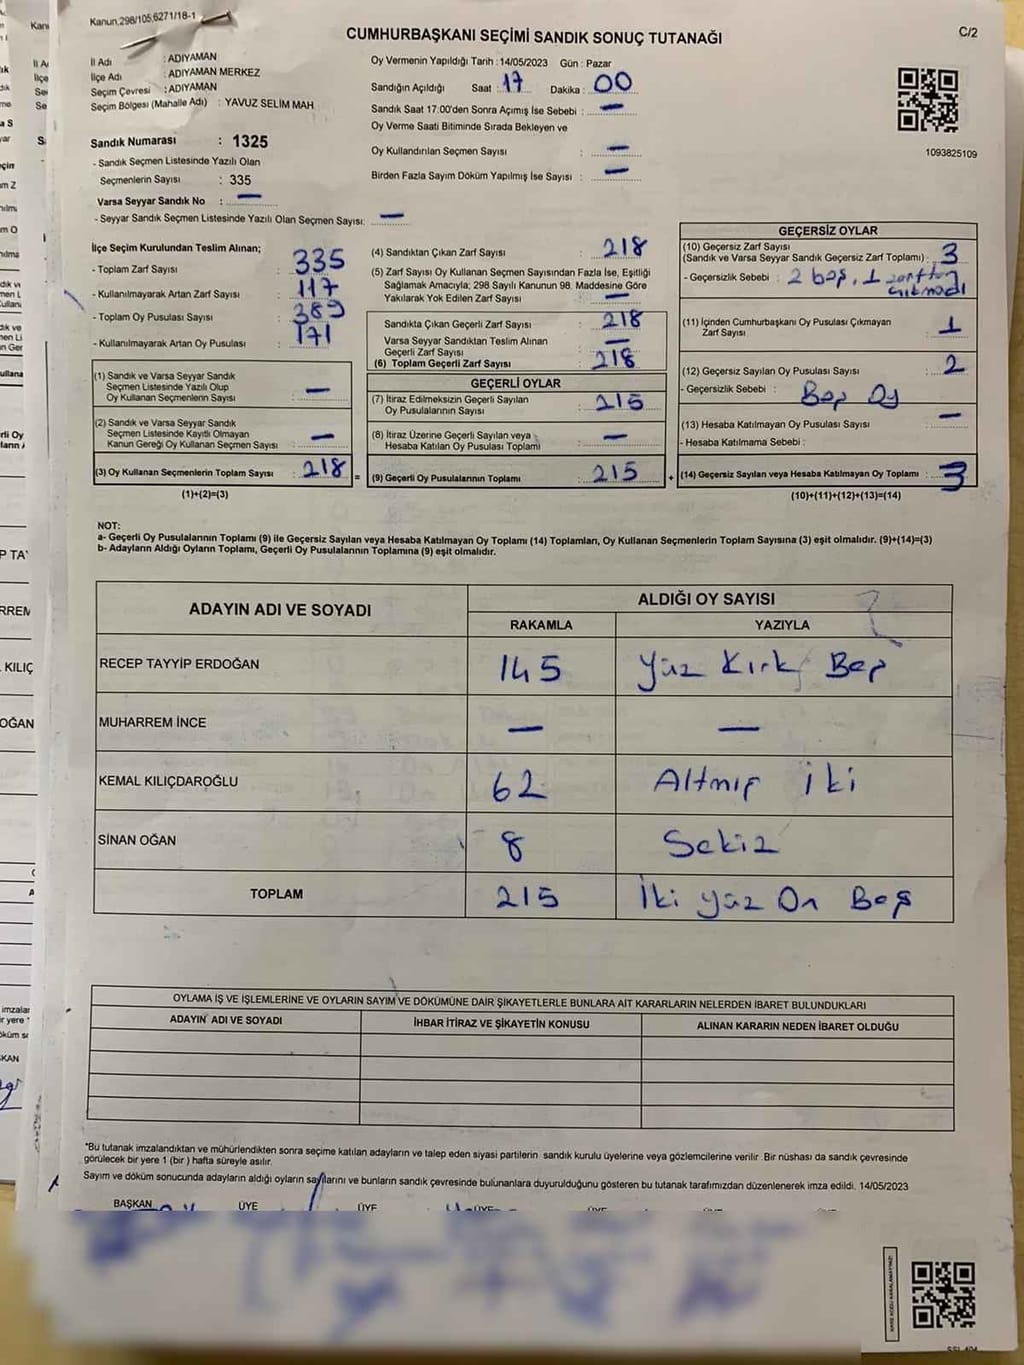 Kanun,298/105,6271/18-1
C/2
CUMHURBAŞKANI SEÇİMİ SANDIK SONUÇ TUTANAĞI
İl Adı : ADIYAMAN
İlçe Adı : ADIYAMAN MERKEZ
Seçim Çevresi : ADIYAMAN
Seçim Bölgesi (Mahalle Adı) : YAVUZ SELİM MAH
Sandık Numarası : 1325
- Sandık Seçmen Listesinde Yazılı Olan
Seçmenlerin Sayısı : 335
Varsa Seyyar Sandık No : —
- Seyyar Sandık Seçmen Listesinde Yazılı Olan Seçmen Sayısı: —
Oy Vermenin Yapıldığı Tarih : 14/05/2023 Gün : Pazar
Sandığın Açıldığı Saat : 17 Dakika : 00
Sandık Saat 17.00'den Sonra Açımış İse Sebebi : —
Oy Verme Saati Bitiminde Sırada Bekleyen ve
Oy Kullandırılan Seçmen Sayısı : —
Birden Fazla Sayım Döküm Yapılmış İse Sayısı : —
1093825109
İlçe Seçim Kurulundan Teslim Alınan;
- Toplam Zarf Sayısı : 335
- Kullanılmayarak Artan Zarf Sayısı : 117
- Toplam Oy Pusulası Sayısı : 389
- Kullanılmayarak Artan Oy Pusulası : 171
(1) Sandık ve Varsa Seyyar Sandık
Seçmen Listesinde Yazılı Olup
Oy Kullanan Seçmenlerin Sayısı : —
(2) Sandık ve Varsa Seyyar Sandık
Seçmen Listesinde Kayıtlı Olmayan
Kanun Gereği Oy Kullanan Seçmen Sayısı : —
(3) Oy Kullanan Seçmenlerin Toplam Sayısı : 218
(1)+(2)=(3)
(4) Sandıktan Çıkan Zarf Sayısı : 218
(5) Zarf Sayısı Oy Kullanan Seçmen Sayısından Fazla İse, Eşitliği
Sağlamak Amacıyla; 298 Sayılı Kanunun 98. Maddesine Göre
Yakılarak Yok Edilen Zarf Sayısı : —
Sandıkta Çıkan Geçerli Zarf Sayısı : 218
Varsa Seyyar Sandıktan Teslim Alınan
Geçerli Zarf Sayısı : —
(6) Toplam Geçerli Zarf Sayısı : 218
GEÇERLİ OYLAR
(7) İtiraz Edilmeksizin Geçerli Sayılan
Oy Pusulalarının Sayısı : 215
(8) İtiraz Üzerine Geçerli Sayılan veya
Hesaba Katılan Oy Pusulası Toplamı : —
= (9) Geçerli Oy Pusulalarının Toplamı : 215
GEÇERSİZ OYLAR
(10) Geçersiz Zarf Sayısı
(Sandık ve Varsa Seyyar Sandık Geçersiz Zarf Toplamı) : 3
- Geçersizlik Sebebi : 2 boş, 1 zarftan
çıkmadı
(11) İçinden Cumhurbaşkanı Oy Pusulası Çıkmayan
Zarf Sayısı : 1
(12) Geçersiz Sayılan Oy Pusulası Sayısı : 2
- Geçersizlik Sebebi : Boş Oy
(13) Hesaba Katılmayan Oy Pusulası Sayısı : —
- Hesaba Katılmama Sebebi :
+ (14) Geçersiz Sayılan veya Hesaba Katılmayan Oy Toplamı : 3
(10)+(11)+(12)+(13)=(14)
NOT:
a- Geçerli Oy Pusulasının Toplamı (9) ile Geçersiz Sayılan veya Hesaba Katılmayan Oy Toplamı (14) Toplamları, Oy Kullanan Seçmenlerin Toplam Sayısına (3) eşit olmalıdır. (9)+(14)=(3)
b- Adayların Aldığı Oyların Toplamı, Geçerli Oy Pusulalarının Toplamına (9) eşit olmalıdır.
ADAYIN ADI VE SOYADI
ALDIĞI OY SAYISI
RAKAMLA YAZIYLA
RECEP TAYYİP ERDOĞAN 145 Yüz Kırk Beş
MUHARREM İNCE — —
KEMAL KILIÇDAROĞLU 62 Altmış iki
SİNAN OĞAN 8 Sekiz
TOPLAM 215 İki yüz On Beş
OYLAMA İŞ VE İŞLEMLERİNE VE OYLARIN SAYIM VE DÖKÜMÜNE DAİR ŞİKAYETLERLE BUNLARA AİT KARARLARIN NELERDEN İBARET BULUNDUKLARI
ADAYIN ADI VE SOYADI İHBAR İTİRAZ VE ŞİKAYETİN KONUSU ALINAN KARARIN NEDEN İBARET OLDUĞU
*Bu tutanak imzalandıktan ve mühürlendikten sonra seçime katılan adayların ve talep eden siyasi partilerin sandık kurulu üyelerine veya gözlemcilerine verilir. Bir nüshası da sandık çevresinde
görülecek bir yere 1 (bir ) hafta süreyle asılır.
Sayım ve döküm sonucunda adayların aldığı oyların sayılarını ve bunların sandık çevresinde bulunanlara duyurulduğunu gösteren bu tutanak tarafımızdan düzenlenerek imza edildi. 14/05/2023
BAŞKAN ÜYE ÜYE ÜYE